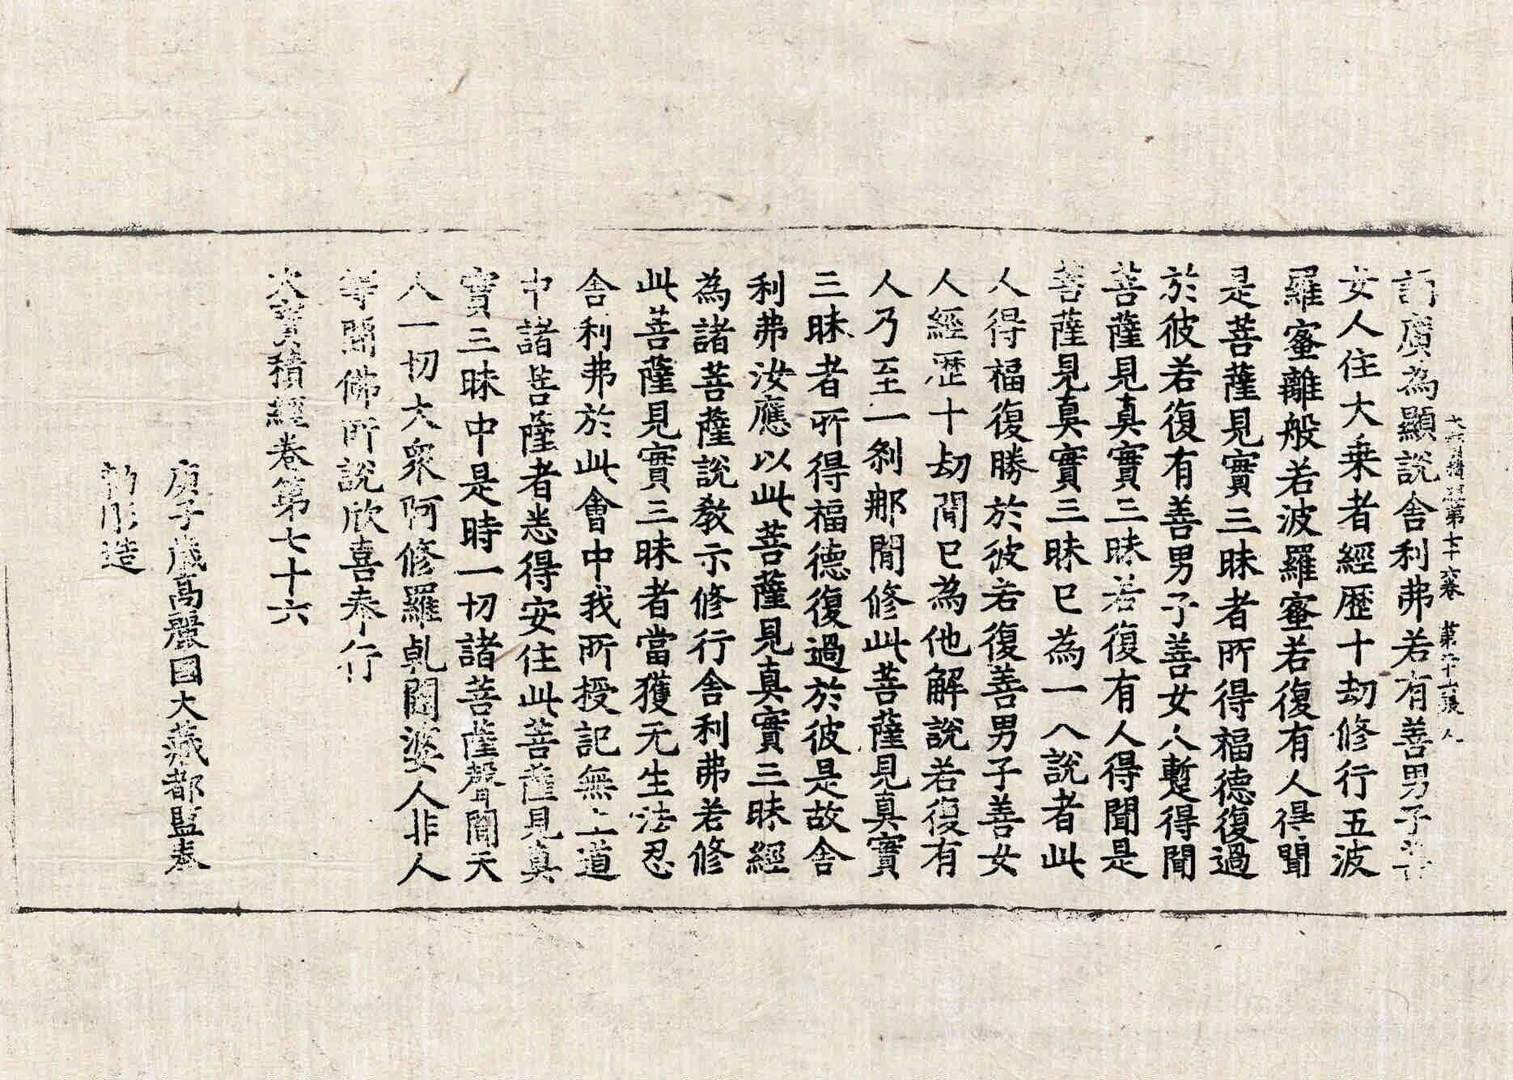 大寶積經第七十六卷 第二十張 人
誦廣為顯說舍利弗若有善男子善
女人住大乘者經歷十劫修行五波
羅蜜離般若波羅蜜若復有人得聞
是菩薩見實三昧者所得福德復過
於彼若復有善男子善女人暫得聞
菩薩見真實三昧若復有人得聞是
菩薩見真實三昧已為一人說者此
人得福復勝於彼若復善男子善女
人經歷十劫聞已為他解說若復有
人乃至一剎那閒修此菩薩見真實
三昧者所得福德復過於彼是故舍
利弗汝應以此菩薩見真實三昧經
為諸菩薩說教示修行舍利弗若修
此菩薩見實三昧者當獲无生法忍
舍利弗於此會中我所授記無上道
中諸菩薩者悉得安住此菩薩見真
實三昧中是時一切諸菩薩聲聞天
人一切大衆阿修羅乹闥婆人非人
等聞佛所說欣喜奉行
大寶積經卷第七十六
庚子歲高麗國大藏都監奉
勅彫造